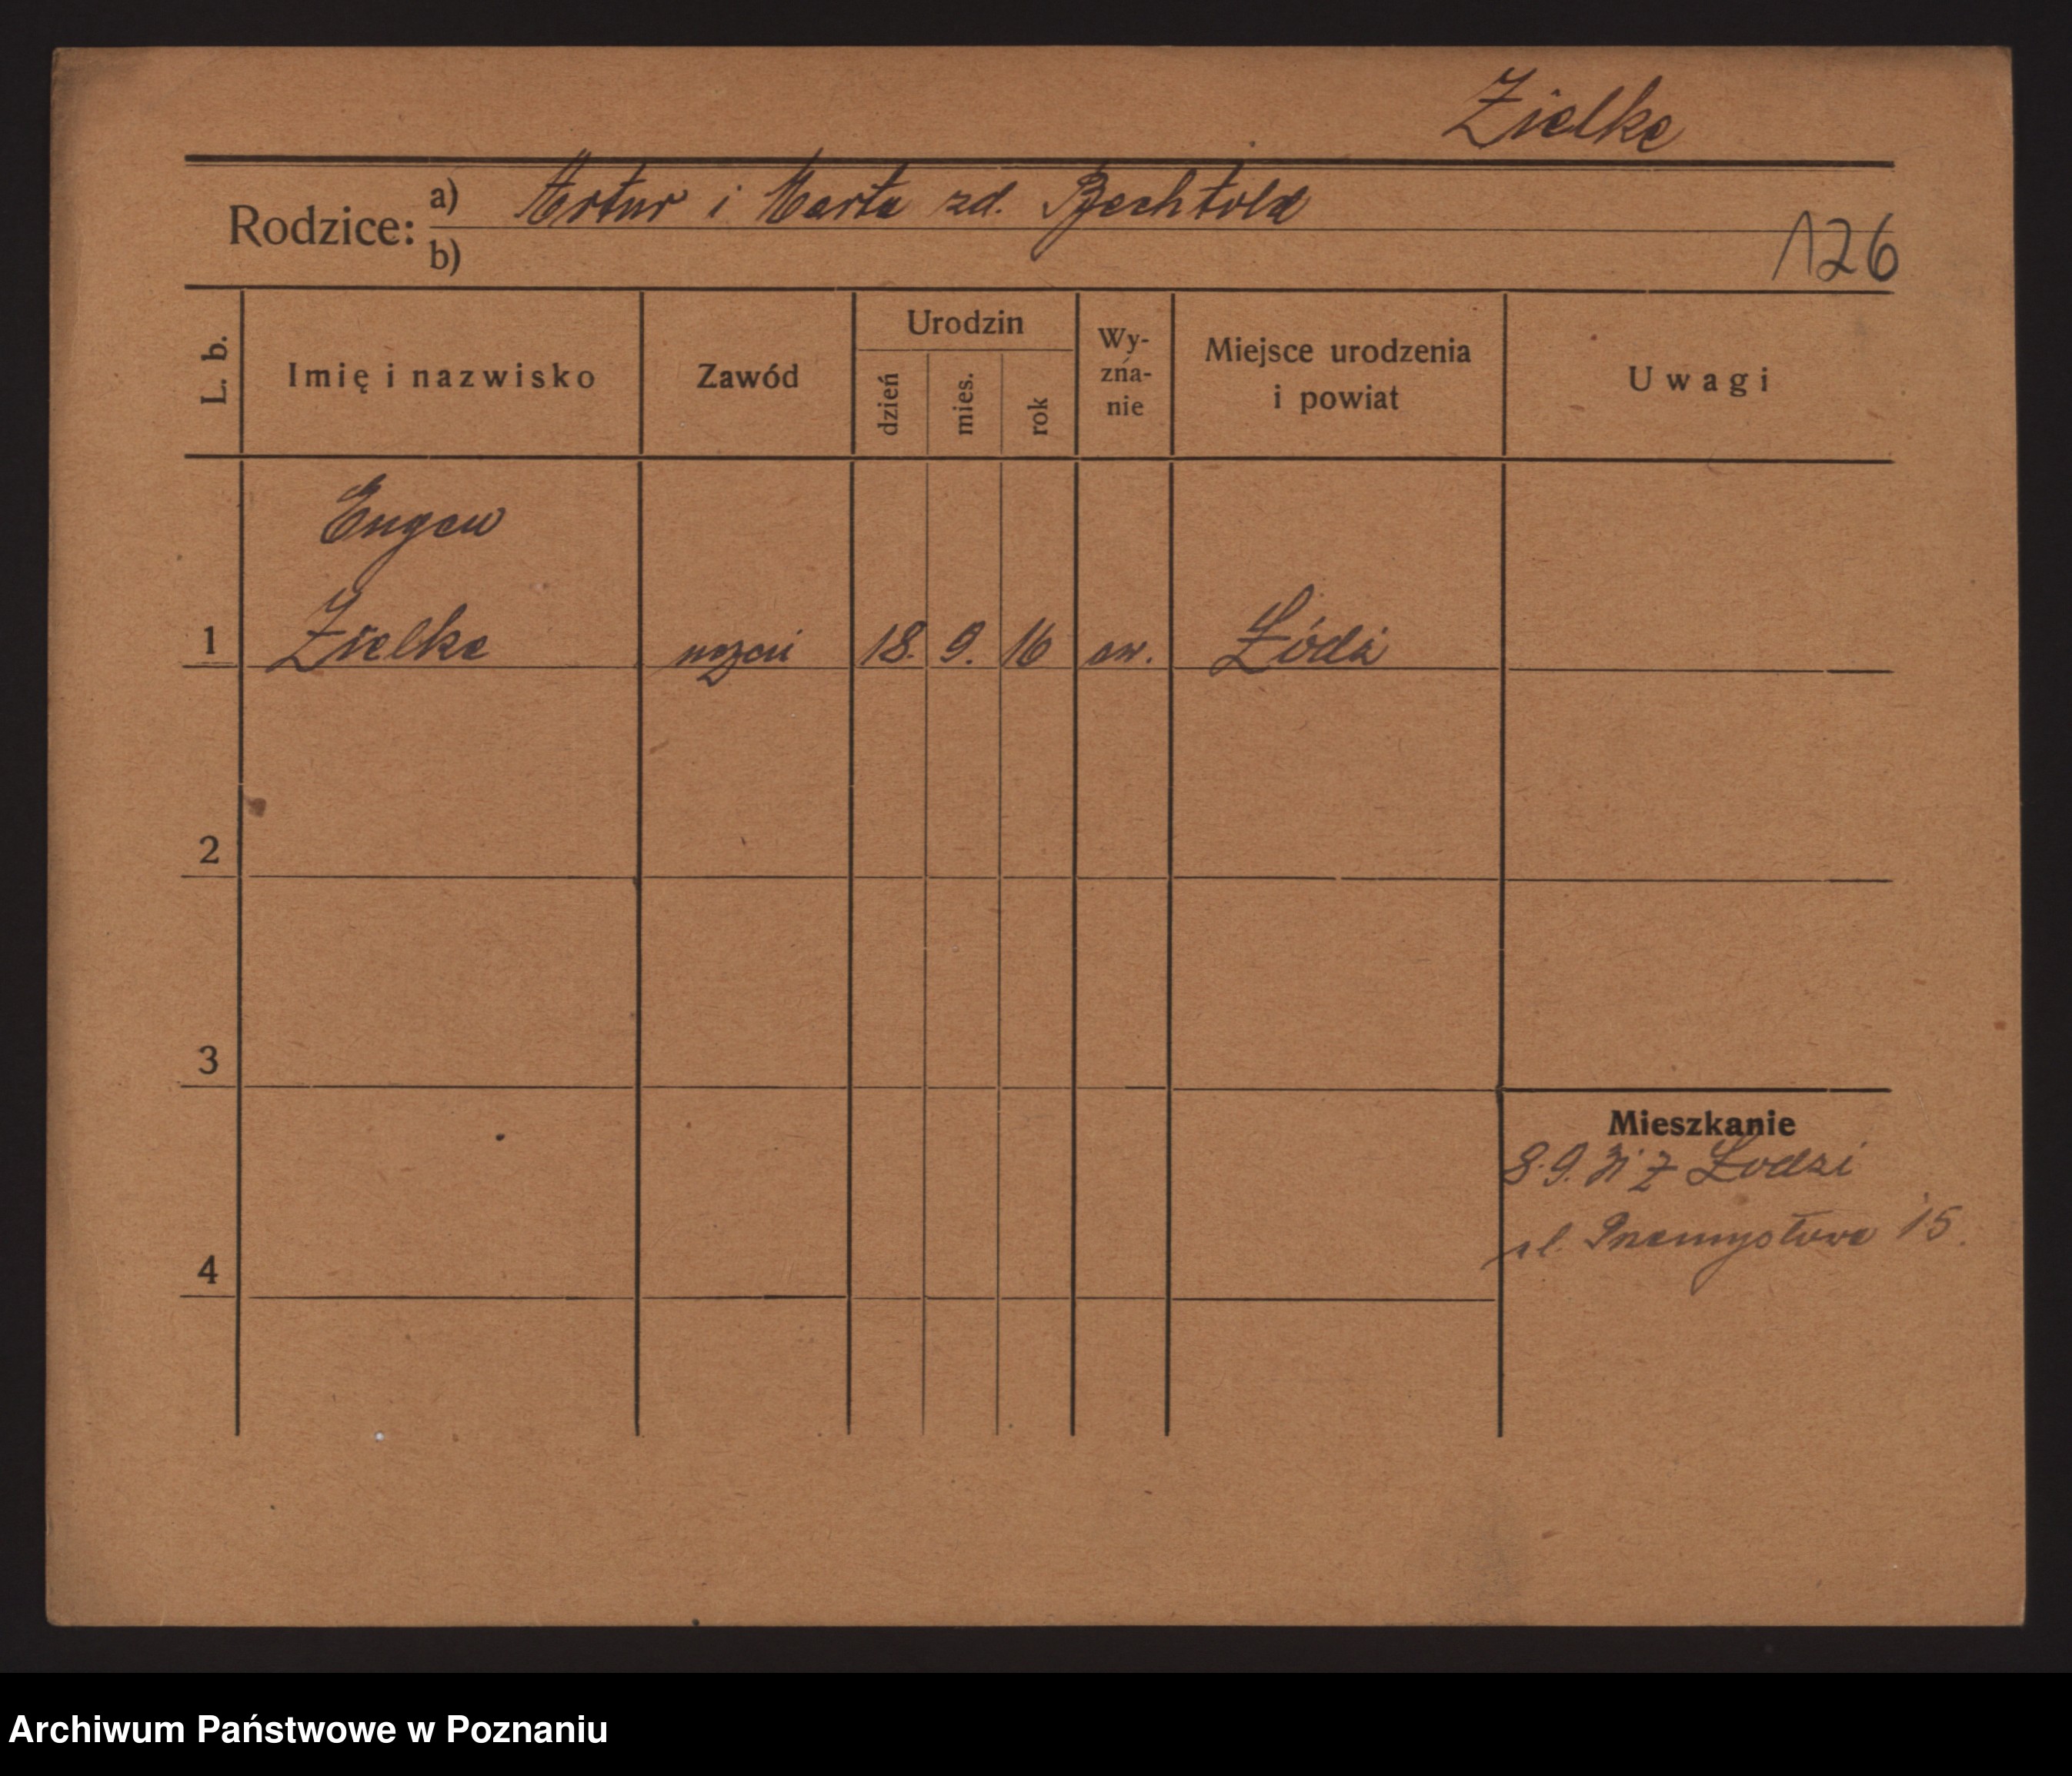 Zielke
Rodzice: a) Artur i Marta zd. Bechtold
b)
126
L. b.
Imię i nazwisko
Zawód
Urodzin
dzień
mies.
rok
Wy-
zna-
nie
Miejsce urodzenia
i powiat
Uwagi
Eugen
1 Zielke uczeń 18. 9. 16 ew. Łódź
2
3
Mieszkanie
8.9.31 z Łodzi
ul. Przemysłowa 15.
4
Archiwum Państwowe w Poznaniu